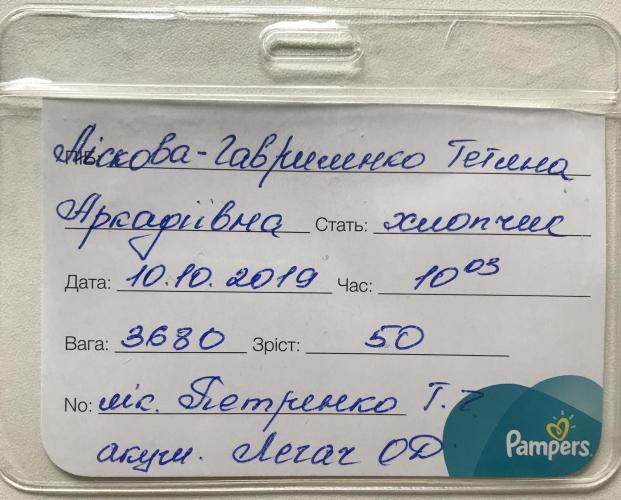 ПІБ: Ліскова-Гавриленко Тетяна
Аркадіївна Стать: хлопчик
Дата: 10.10.2019 Час: 10 03
Вага: 3680 Зріст: 50
No: лік. Петренко Т.
акуш. Легач ОД
Pampers.